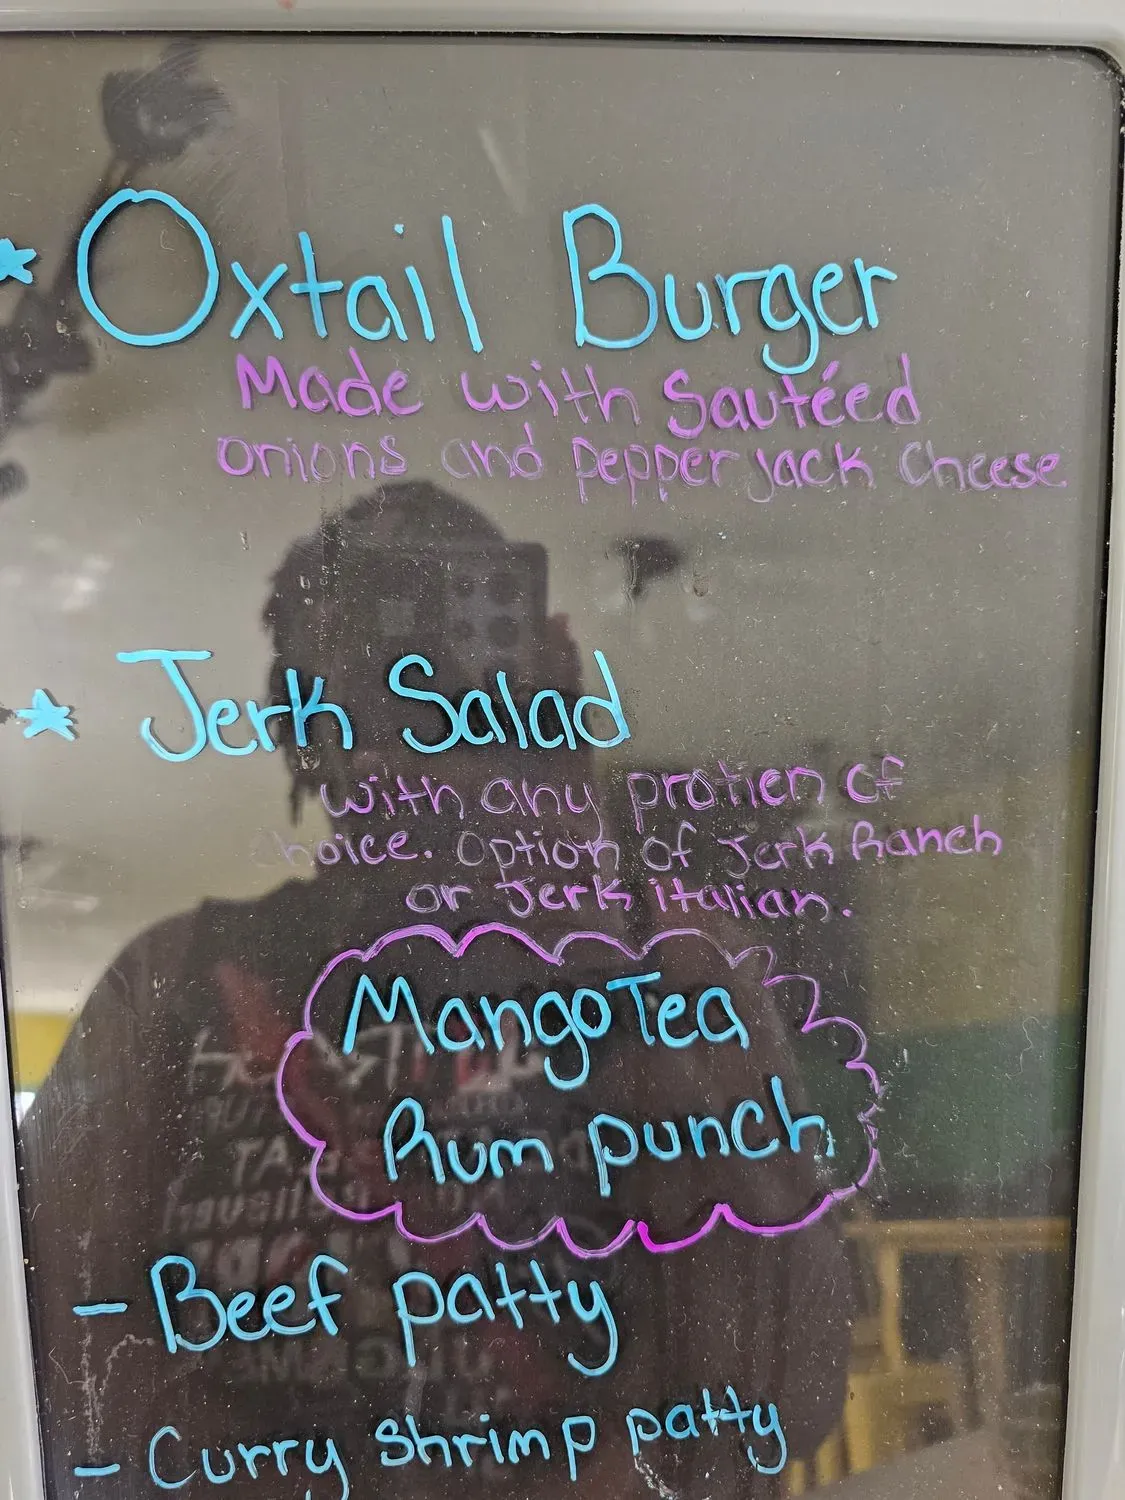 Oxtail Burger
Made with Sautéed
onions and pepper jack cheese
Jerk Salad
with any protien of
choice. Option of Jerk Ranch
or Jerk italian.
Mango Tea
Rum punch
- Beef patty
- Curry shrimp patty